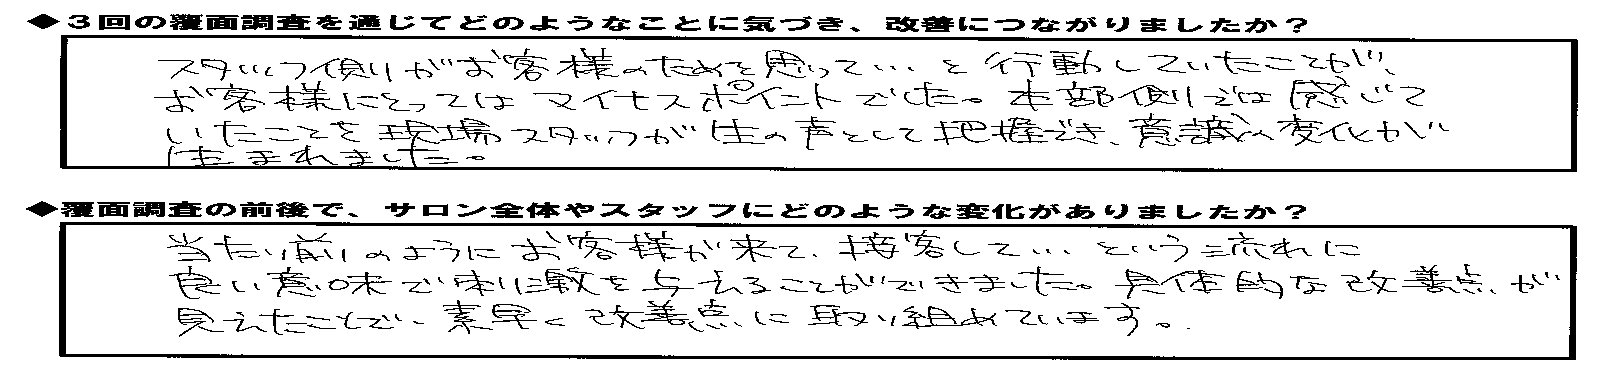 ◆３回の覆面調査を通じてどのようなことに気づき、改善につながりましたか？
スタッフ側がお客様のためを思って…と行動していたことが、
お客様にとってはマイナスポイントでした。本部側では感じて
いたことを現場スタッフが生の声として把握でき、意識の変化が
生まれました。
◆覆面調査の前後で、サロン全体やスタッフにどのような変化がありましたか？
当たり前のようにお客様が来て、接客して…という流れに
良い意味で刺激を与えることができました。具体的な改善点が
見えたことで、素早く改善点に取り組めています。